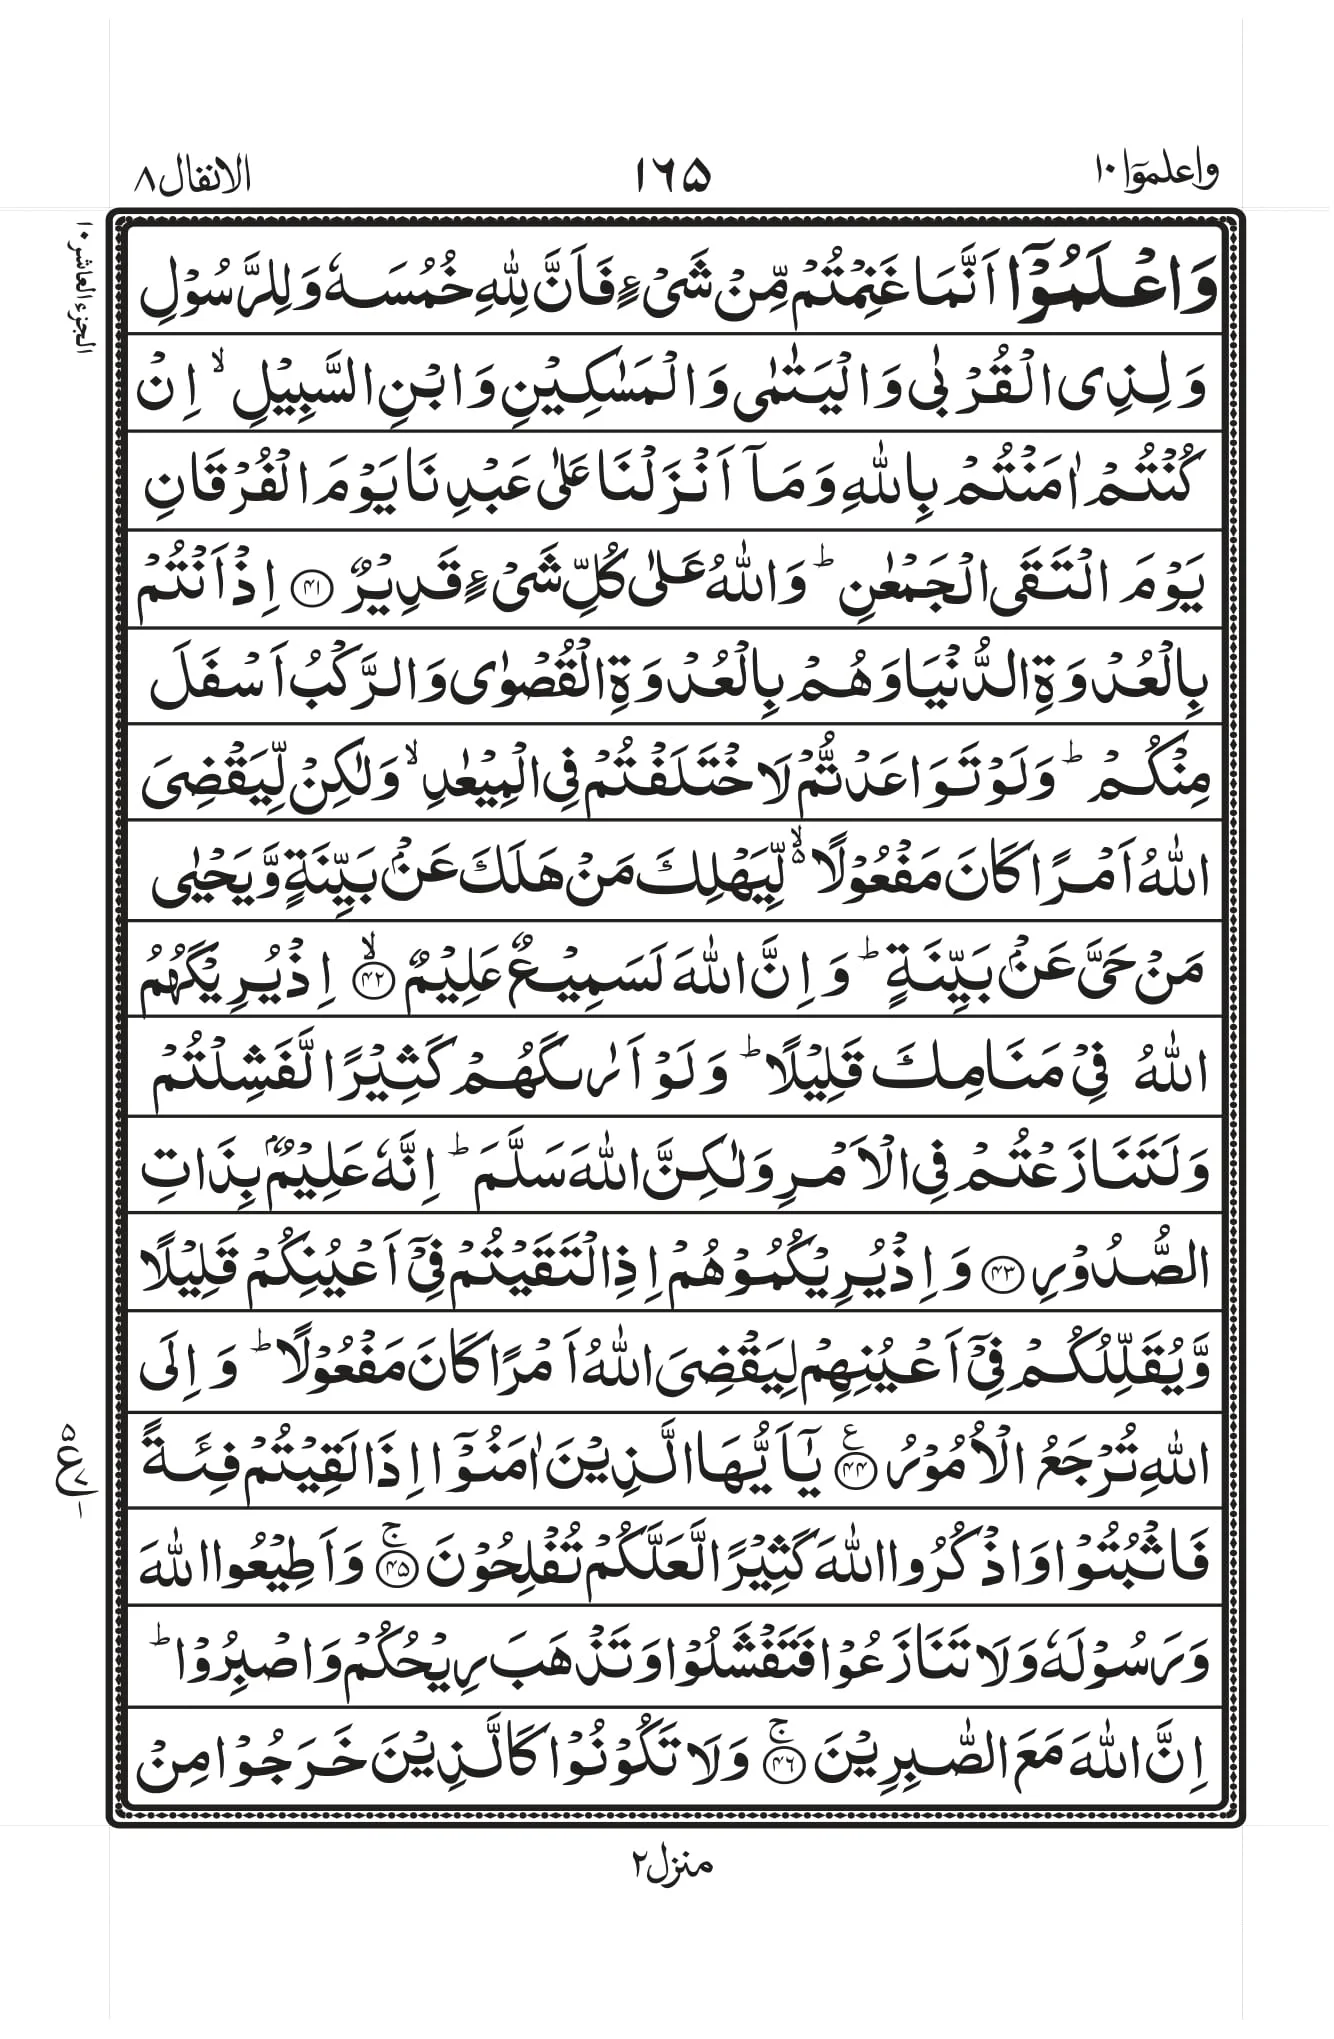 واعلموٓا ١٠
١٦٥
الانفال ٨
الجزء العاشر ١٠
وَاعۡلَمُوۡۤا اَنَّمَا غَنِمۡتُمۡ مِّنۡ شَىۡءٍ فَاَنَّ لِلّٰهِ خُمُسَهٗ وَلِلرَّسُوۡلِ
وَلِذِى الۡقُرۡبٰى وَالۡيَتٰمٰى وَالۡمَسٰكِيۡنِ وَابۡنِ السَّبِيۡلِ ۙ اِنۡ
كُنۡتُمۡ اٰمَنۡتُمۡ بِاللّٰهِ وَمَاۤ اَنۡزَلۡنَا عَلٰى عَبۡدِنَا يَوۡمَ الۡفُرۡقَانِ
يَوۡمَ الۡتَقَى الۡجَمۡعٰنِ ؕ وَاللّٰهُ عَلٰى كُلِّ شَىۡءٍ قَدِيۡرٌ ﴿۴۱﴾ اِذۡ اَنۡتُمۡ
بِالۡعُدۡوَةِ الدُّنۡيَا وَهُمۡ بِالۡعُدۡوَةِ الۡقُصۡوٰى وَالرَّكۡبُ اَسۡفَلَ
مِنۡكُمۡ ؕ وَلَوۡ تَوَاعَدْتُّمۡ لَاخۡتَلَفۡتُمۡ فِى الۡمِيۡعٰدِ ۙ وَلٰكِنۡ لِّيَقۡضِىَ
اللّٰهُ اَمۡرًا كَانَ مَفۡعُوۡلًا ۙ۬ لِّيَهۡلِكَ مَنۡ هَلَكَ عَنۡۢ بَيِّنَةٍ وَّيَحۡيٰى
مَنۡ حَىَّ عَنۡۢ بَيِّنَةٍ ؕ وَاِنَّ اللّٰهَ لَسَمِيۡعٌ عَلِيۡمٌ ۙ﴿۴۲﴾ اِذۡ يُرِيۡكَهُمُ
اللّٰهُ فِىۡ مَنَامِكَ قَلِيۡلًا ؕ وَلَوۡ اَرٰٮكَهُمۡ كَثِيۡرًا لَّفَشِلۡتُمۡ
وَلَتَنَازَعۡتُمۡ فِى الۡاَمۡرِ وَلٰكِنَّ اللّٰهَ سَلَّمَ ؕ اِنَّهٗ عَلِيۡمٌۢ بِذَاتِ
الصُّدُوۡرِ ﴿۴۳﴾ وَاِذۡ يُرِيۡكُمُوۡهُمۡ اِذِ الۡتَقَيۡتُمۡ فِىۡۤ اَعۡيُنِكُمۡ قَلِيۡلًا
وَّيُقَلِّلُكُمۡ فِىۡۤ اَعۡيُنِهِمۡ لِيَقۡضِىَ اللّٰهُ اَمۡرًا كَانَ مَفۡعُوۡلًا ؕ وَاِلَى
اللّٰهِ تُرۡجَعُ الۡاُمُوۡرُ ﴿۴۴﴾ع يٰۤاَيُّهَا الَّذِيۡنَ اٰمَنُوۡۤا اِذَا لَقِيۡتُمۡ فِئَةً
۵ ع ٧ ١
فَاثۡبُتُوۡا وَاذۡكُرُوا اللّٰهَ كَثِيۡرًا لَّعَلَّكُمۡ تُفۡلِحُوۡنَ ۚ﴿۴۵﴾ وَاَطِيۡعُوا اللّٰهَ
وَرَسُوۡلَهٗ وَلَا تَنَازَعُوۡا فَتَفۡشَلُوۡا وَتَذۡهَبَ رِيۡحُكُمۡ وَاصۡبِرُوۡا ؕ
اِنَّ اللّٰهَ مَعَ الصّٰبِرِيۡنَ ۚ﴿۴۶﴾ وَلَا تَكُوۡنُوۡا كَالَّذِيۡنَ خَرَجُوۡا مِنۡ
منزل ٢